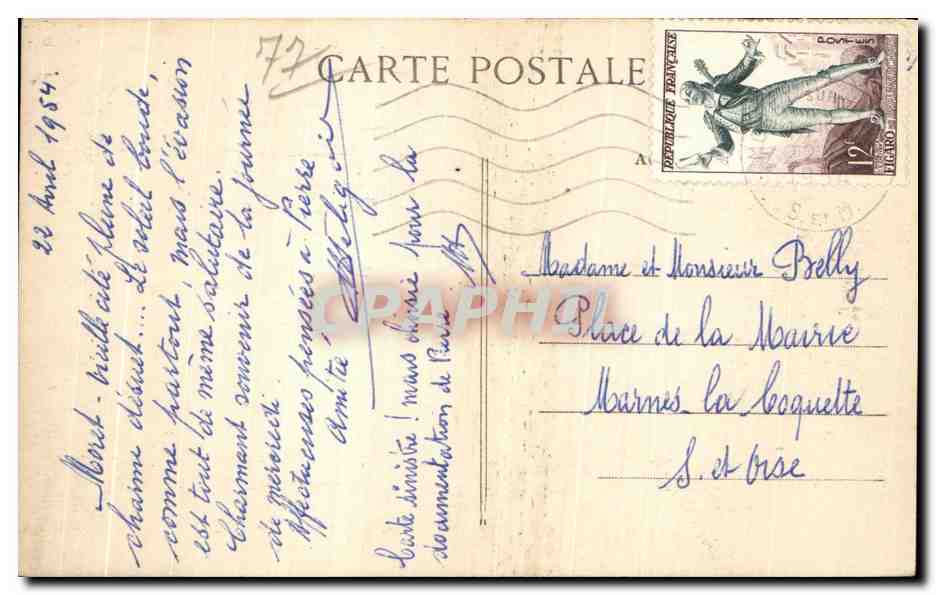 77
CARTE POSTALE
22 Avril 1954.
Moret - vieille cité pleine de
charme désuet.... Le soleil boude,
comme partout, mais l'évasion
est tout de même salutaire.
Charmant souvenir de la journée
de mercredi.
Affectueuses pensées à Pierre
Amitié
Carte sinistre! mais choisie pour la
documentation de Pierre
REPUBLIQUE FRANÇAISE
POSTES
12F
FIGARO
S. ET M.
Madame et Monsieur Belly
Place de la Mairie
Marnes la Coquette
S. et Oise
CPAPHIL